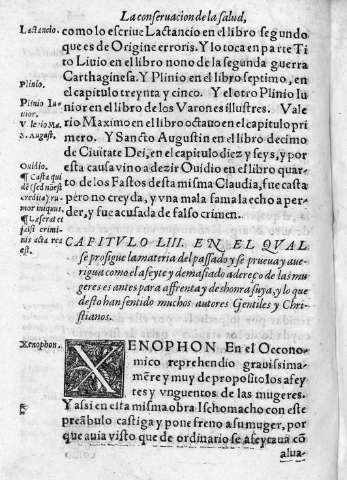 La conseruacion de la salud,
Lactancio.
como lo escriue Lactancio en el libro segundo
que es de Origine erroris. Y lo toca en parte Ti
to Liuio en el libro nono de la segunda guerra
Carthaginesa. Y Plinio en el libro septimo, en
Plinio.
el capitulo treynta y cinco. Y el otro Plinio Iu
Plinio Iu
nior.
nior en el libro de los Varones illustres. Vale
Valerio Ma.
rio Maximo en el libro octauo en el capitulo pri
S. August.
mero. Y Sancto Augustin en el libro decimo
de Ciuitate Dei, en el capitulo diez y seys, y por
Ouidio.
esta causa vino a dezir Ouidio en el libro quar
¶ Casta qui
to de los Fastos desta misma Claudia, fue casta
dē (sed nō est
credita) ru-
pero no creyda, y vna mala fama la echo a per-
mor iniquus.
der, y fue acusada de falso crimen.
¶ Læserat et
falsi crimi-
nis acta res
est.
CAPITVLO LIII. EN EL QVAL
se prosigue la materia del passado y se prueua y aue-
rigua como el afeyte y demasiado adereço de las mu
geres es antes para affrenta y deshonra suya, y lo que
desto han sentido muchos autores Gentiles y Chri-
stianos.
Xenophon.
XENOPHON En el Oecono-
mico reprehendio grauissima-
mēte y muy de proposito los afey
tes y vnguentos de las mugeres.
Y assi en esta misma obra Ischomacho con este
preābulo castiga y pone freno a su muger, por
que auia visto que de ordinario se afeytaua cō
alua-